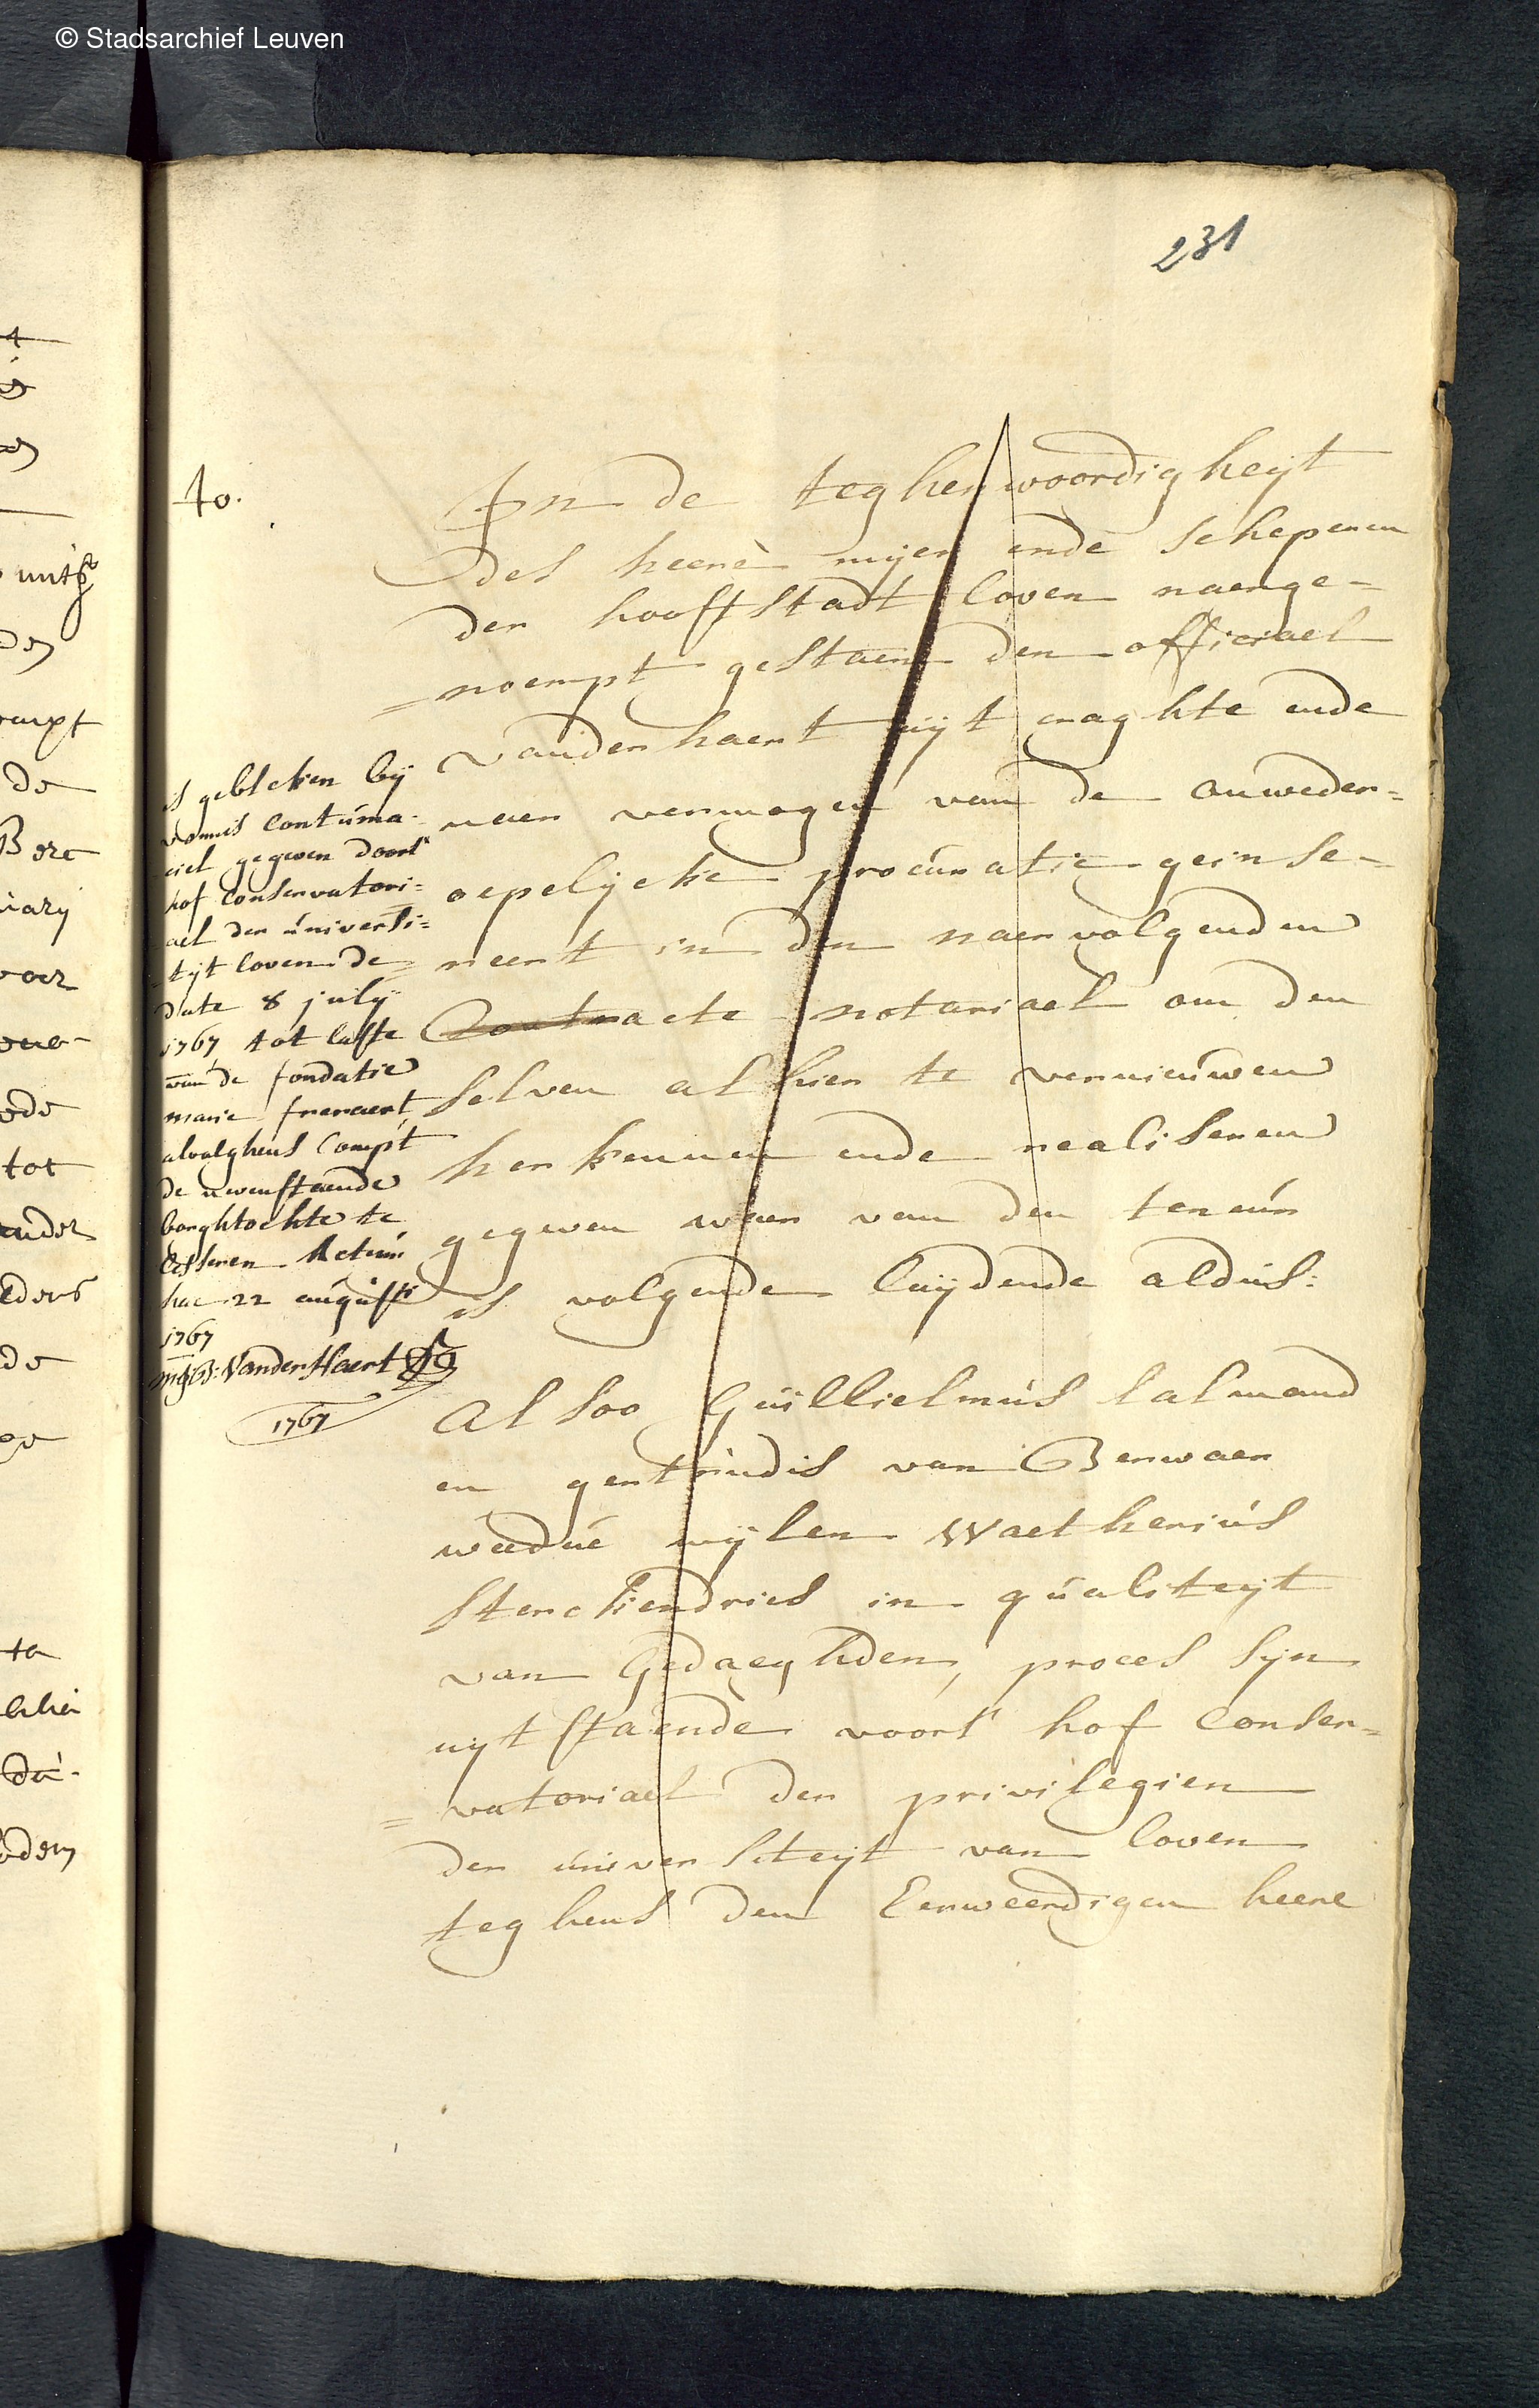 © Stadsarchief Leuven
231
to.
In de teghenwoordigheyt
des heere meyer ende schepenen
der hooftstadt loven naerge=
=noempt gestaen den officiael
vander haert uijt craghte ende
naer vermogen van de onweder=
oepelijcke procuratie geinse-
reert in den naervolgenden
Contracte notariael om den
selven alhier te vernieuwen
herkennen ende realiseren
gegeven waer van den teneur
is volgende luijdende aldus:
Alsoo Guillielmus lalmand
en gertrudis van Berwaer
weduë wijlen Waetherius
Sterckendries in qualiteyt
van Gedaeghden, proces sijn
uijtstaende voort hof Conser=
=vatoriael der privilegien
der universiteyt van loven
teghens den Eerweerdigen heere
is gebleken bij
vonnis contuma-
ciel gegeven door't
hof conservatori=
ael der universi=
tijt loven de
date 8 julij
1767 tot laste
van de fondatie
marie freraert,
alvolghens compt
de nevenstaende
borghtochte te
Cesseren Actum
hac 22 augusti
1767
VanderHaert
1767